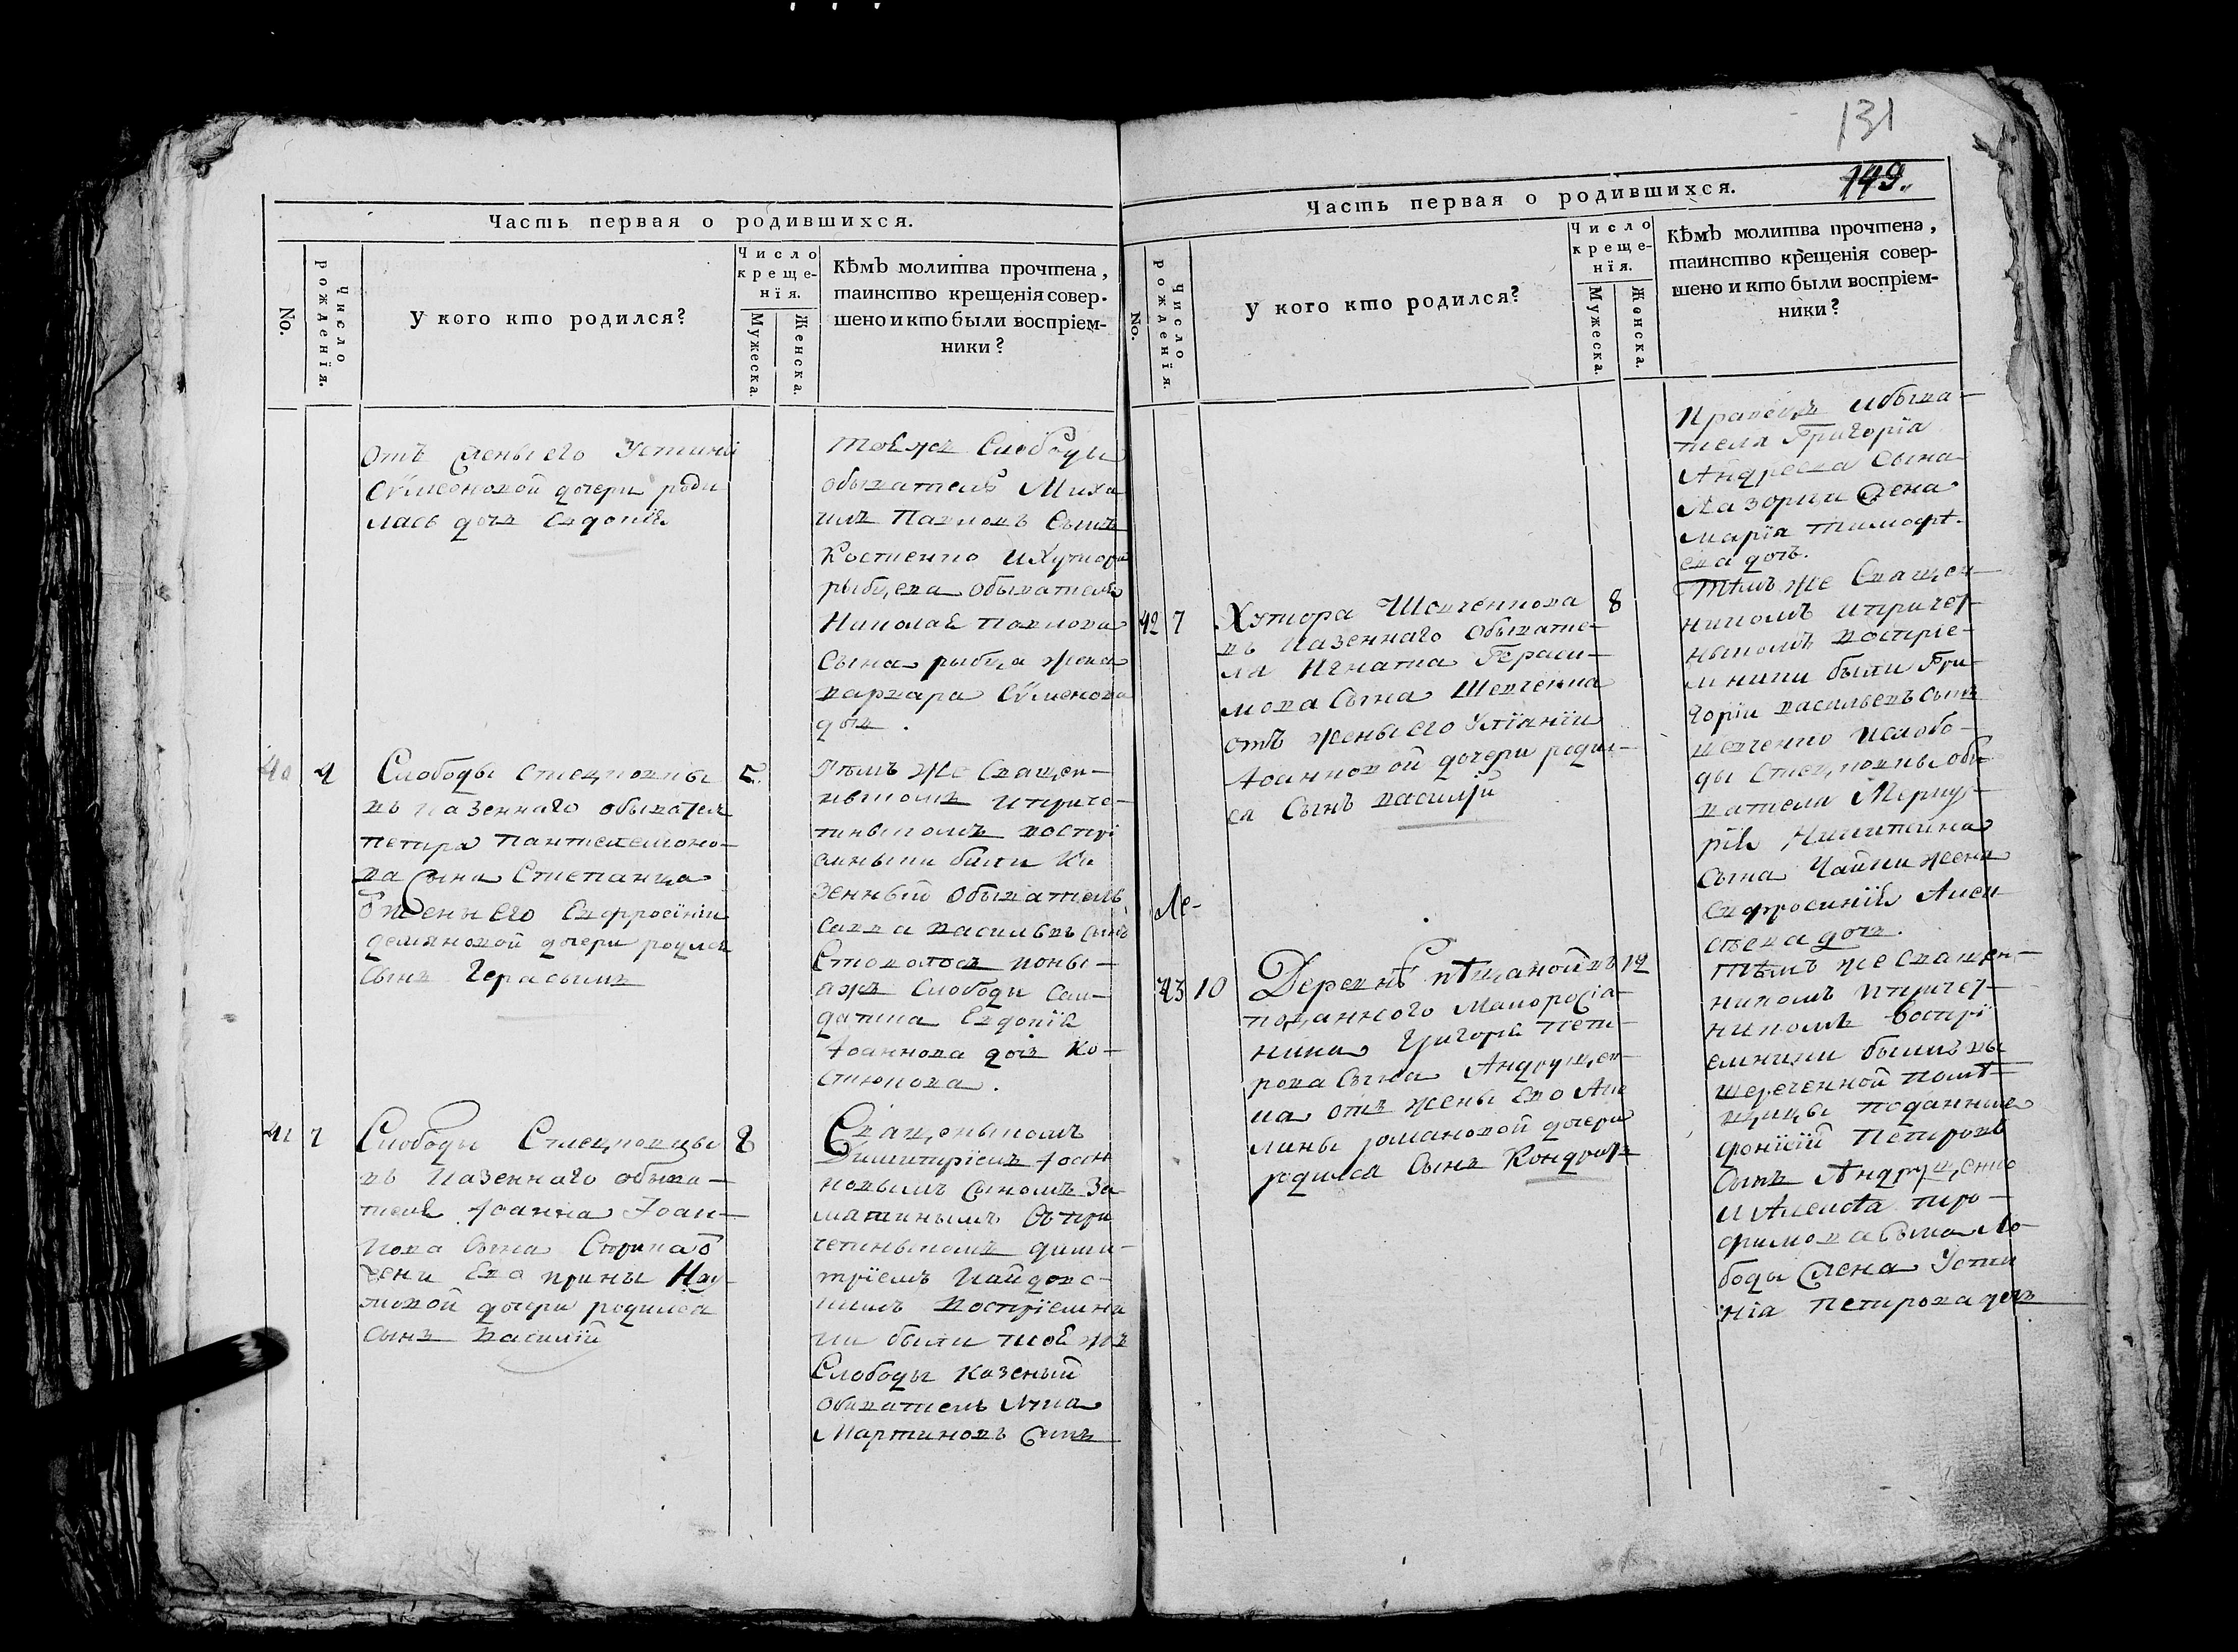 131
149.
Часть первая о родившихся.
No.
Число рожденїя.
У кого кто родился?
Число крещенїя.
Мужеска.
Женска.
Кѣмъ молитва прочтена,
таинство крещенія совер-
шено и кто были воспріем-
ники?
отъ жены его Устины
Сѵмеоновой дочери роди
лась дочь Евдокія
тоеяже Слободы
обыватель Миха
илъ Павловъ Сынъ
Костенко и Хутора
рыбцева обывателя
Николая павлова
Сына рыбца жена
варвара Сѵмеонова
дочь.
40 4
Слободы Стецковки
въ казеннаго обывателя
петра Пантелеимоно-
ва Сына Степанца
ѿ жены его Евфросїніи
демяновой дочери родился
Сынъ Герасимъ
5
Тѣмъ же Священ-
никомъ иприче-
тникомъ воспрі
емники были Ка
зенный обыватель
Савва васильевъ сынъ
Стоволосъ
Слободы
Евдокїя
Іоаннова дочь Ко-
стюкова.
41 7
Слободы Стецковки
въ казеннаго обыва-
теля Іоанна Іоан-
нова Сына Спричаѿ
жени Его ирины Нау-
мовой дочери родился
Сынъ василій
8
Священикомъ
Димитріемъ Іоан
новымъ Сыномъ За
съ при
четникомъ дими-
трїемъ
воспрїемни
ки были тоея же
Слободы Казеный
обиватель
Мартиновъ Сынъ
Часть первая о родившихся.
No.
Число рожденїя.
У кого кто родился?
Число крещенїя.
Мужеска.
Женска.
Кѣмъ молитва прочтена,
таинство крещенія совер-
шено и кто были воспріем-
ники?
обыва-
теля Григорїя
Андреева Сына
Лазорки жена
марїя тимофѣ-
ева дочь.
42 7
Хутора Шевченкова
въ казеннаго обывате-
ля Игната Гераси-
мова Сына Шевченка
отъ жены его Улїянїи
Іоанновой дочери родил-
ся Сынъ василїй
8
Тѣмъ же Священ-
никомъ и причет-
никомъ воспріе-
мники были Гри-
горїи васильевъ сынъ
шевченко и слобо-
ды Стецковки обы
вателя Мерку-
рїя Никитина
Сына Чайки жена
Евфросинїя Алек
сѣева дочь.
43 10
Деревнѣ пѣщаной въ
поданного Малоросіа-
нина Григорія пет-
рова Сына Андрущен-
ка отъ жены Его Аки
лины романовой дочери
родился Сынъ Кондратъ
12
Тѣмъ же Священ-
никомъ и причет-
никомъ воспрі
емники были вы
шереченной помѣ-
щицы поданные
Петровъ
Сынъ Андрущенко
и Алексѣя тро-
фимова Сына Ло-
боды жена Усти
нія петрова дочь